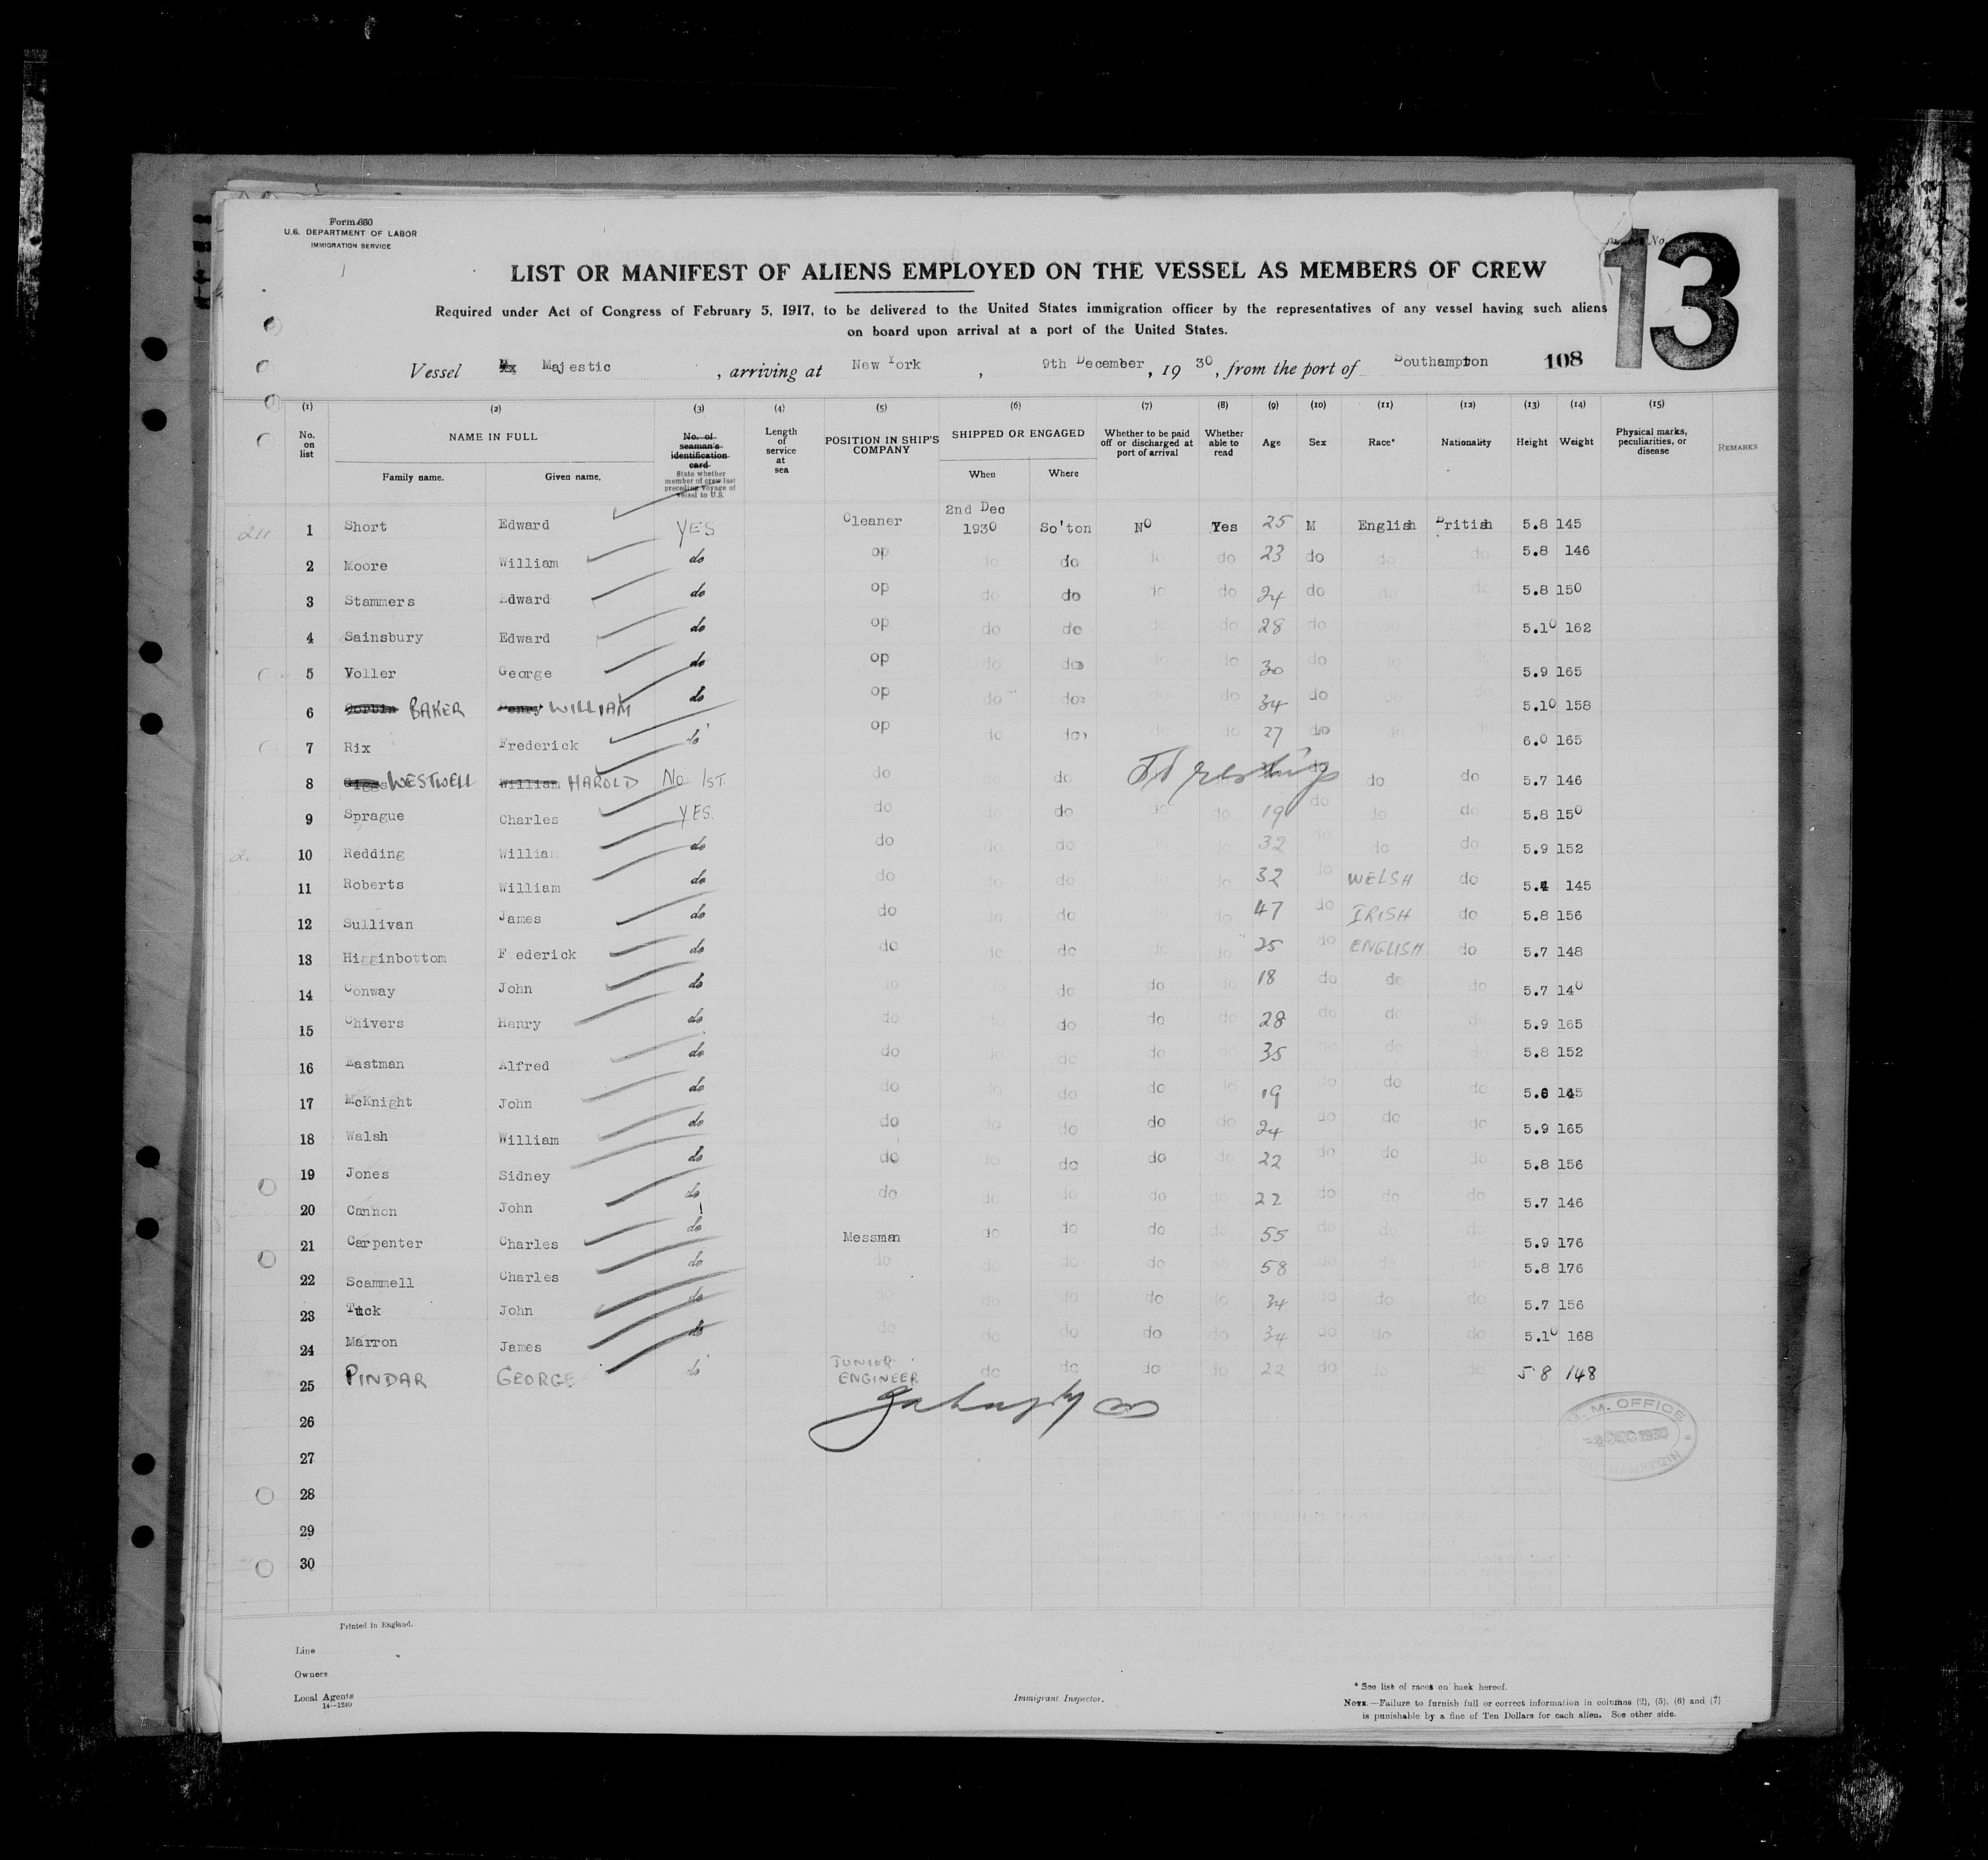 Form 680
U.S. DEPARTMENT OF LABOR
IMMIGRATION SERVICE
No.
13
LIST OR MANIFEST OF ALIENS EMPLOYED ON THE VESSEL AS MEMBERS OF CREW
Required under Act of Congress of February 5, 1917, to be delivered to the United States immigration officer by the representatives of any vessel having such aliens
on board upon arrival at a port of the United States.
Vessel Majestic , arriving at New York , 9th December, 1930, from the port of Southampton 108
(1) (2) (3) (4) (5) (6) (7) (8) (9) (10) (11) (12) (13) (14) (15)
No. on list NAME IN FULL Family name. Given name. No. of seaman's identification card State whether member of crew last preceding voyage of vessel to U.S. Length of service at sea POSITION IN SHIP'S COMPANY SHIPPED OR ENGAGED When Where Whether to be paid off or discharged at port of arrival Whether able to read Age Sex Race* Nationality Height Weight Physical marks, peculiarities, or disease REMARKS
211 1 Short Edward YES Cleaner 2nd Dec 1930 So'ton NO Yes 25 M English British 5.8 145
2 Moore William do op do do do do 23 do do do 5.8 146
3 Stammers Edward do op do do do do 24 do do 5.8 150
4 Sainsbury Edward do op do do do do 28 do do 5.10 162
5 Voller George do op do do do do 30 do do 5.9 165
6 Corbin BAKER Henry WILLIAM do op do do do do 34 do do 5.10 158
7 Rix Frederick do op do do do do 27 do do 6.0 165
8 WESTWELL William HAROLD No 1ST. do do do do do do 5.7 146
9 Sprague Charles YES. do do do do do 19 do do do 5.8 150
10 Redding William do do do do do do 32 do do do 5.9 152
11 Roberts William do do do do do 32 do WELSH do 5.4 145
12 Sullivan James do do do do do 47 do IRISH do 5.8 156
13 Higginbottom Frederick do do do do do do 25 do ENGLISH do 5.7 148
14 Conway John do do do do do 18 do do do 5.7 140
15 Chivers Henry do do do do do 28 do do do 5.9 165
16 Eastman Alfred do do do do do do 35 do do do 5.8 152
17 McKnight John do do do do do do 19 do do do 5.6 145
18 Walsh William do do do do do do 24 do do do 5.9 165
19 Jones Sidney do do do do do do 22 do do do 5.8 156
20 Cannon John do do do do do do 22 do do do 5.7 146
21 Carpenter Charles do Messman do do do do 55 do do do 5.9 176
22 Scammell Charles do do do do do do 58 do do do 5.8 176
23 Tuck John do do do do do do 34 do do do 5.7 156
24 Marron James do do do do do do 34 do do do 5.10 168
25 PINDAR GEORGE do JUNIOR ENGINEER do do do do 22 do do do 5 8 148
26
27
28
29
30
M. M. OFFICE
DEC 1930
SOUTHAMPTON
Printed in England.
Line
Owners
Local Agents
14—1240
Immigrant Inspector.
* See list of races on back hereof.
NOTE.—Failure to furnish full or correct information in columns (2), (5), (6) and (7)
is punishable by a fine of Ten Dollars for each alien. See other side.